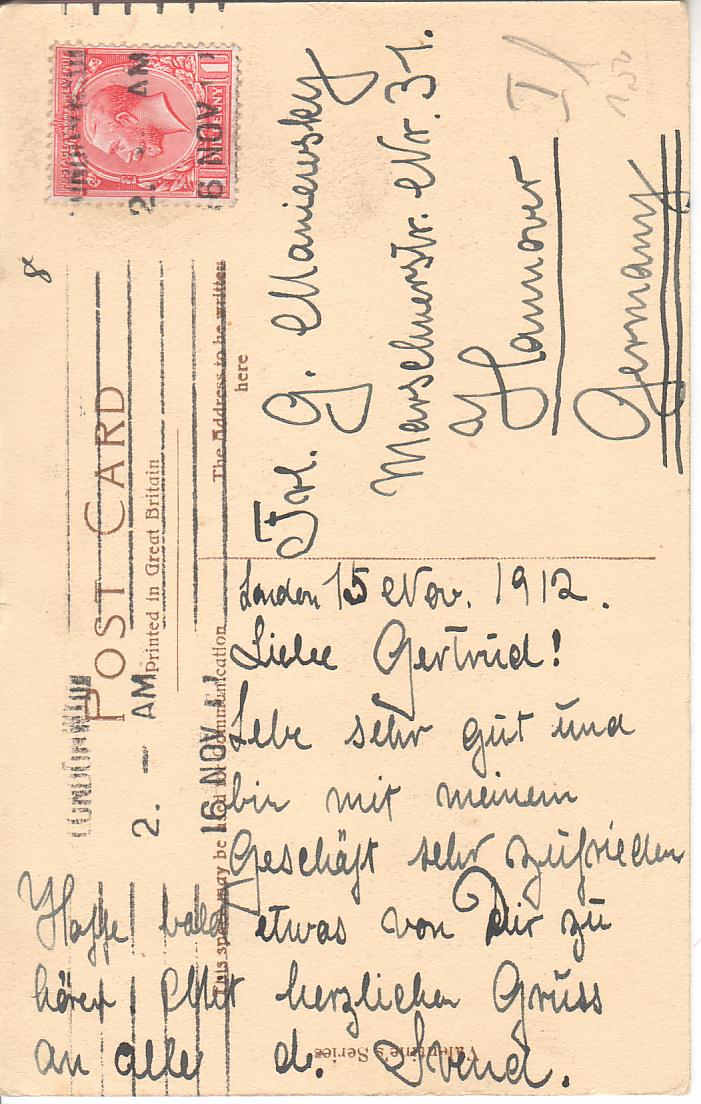 POST CARD
Printed in Great Britain
This space may be used for communication
The Address to be written
here
POSTAGE REVENUE
ONE PENNY
LONDON
2. — AM
16 NOV
AM
6 NOV
8
London 15 Nov. 1912.
Liebe Gertrud!
Lebe sehr gut und
bin mit meinem
Geschäft sehr zufrieden
Hoffe bald etwas von Dir zu
hören! Mit herzlichen Gruss
an alle d. Svend.
Frl. G. Maniewsky
Marschnerstr. Nr. 31.
a/ Hannover
Germany
I/
Valentine's Series